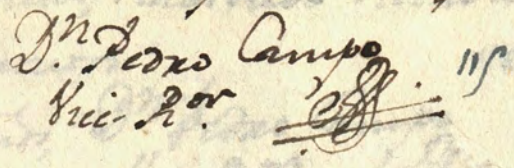 D.n Pedro Campo
Vice R.or